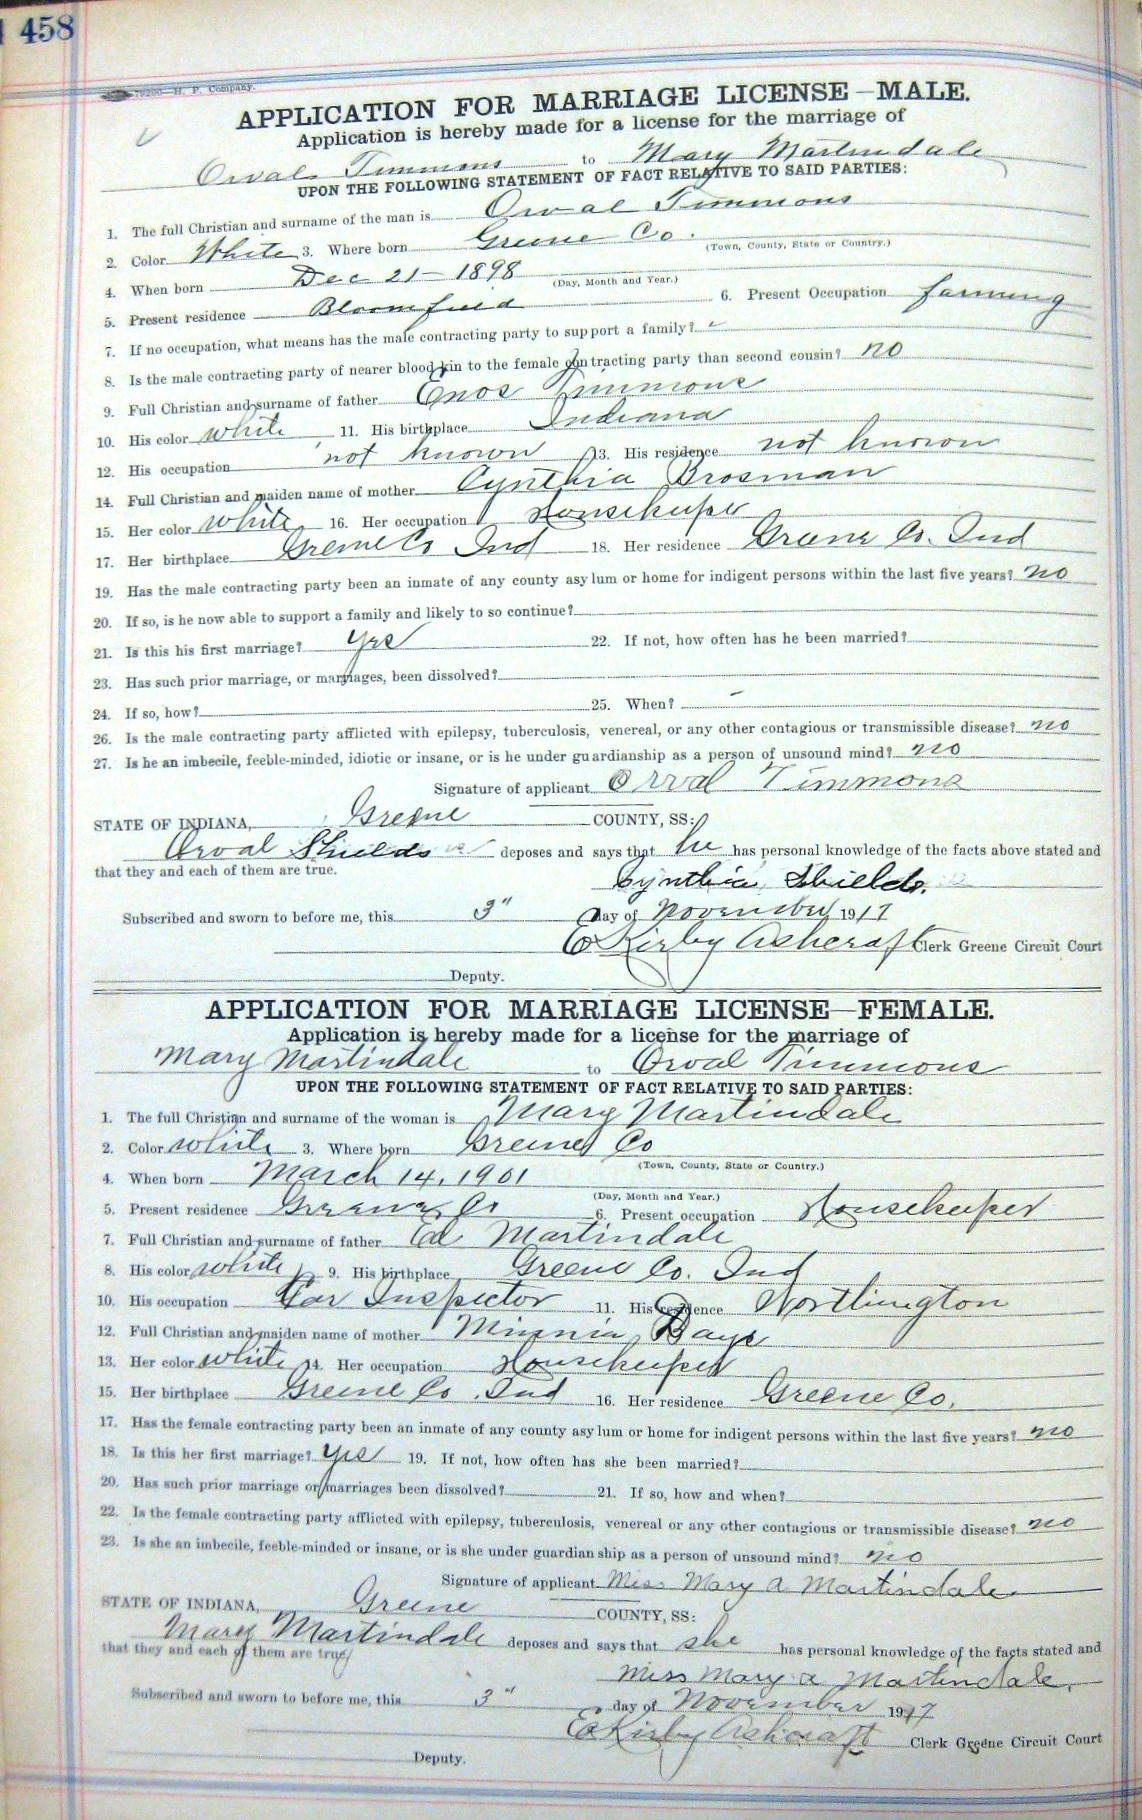 458
79200—H. P. Company.
APPLICATION FOR MARRIAGE LICENSE—MALE.
Application is hereby made for a license for the marriage of
Orval Timmons to Mary Martindale
UPON THE FOLLOWING STATEMENT OF FACT RELATIVE TO SAID PARTIES:
1. The full Christian and surname of the man is Orval Timmons
2. Color White 3. Where born Greene Co.
(Town, County, State or Country.)
4. When born Dec 21 — 1898
(Day, Month and Year.)
5. Present residence Bloomfield 6. Present Occupation farming
7. If no occupation, what means has the male contracting party to support a family?
8. Is the male contracting party of nearer blood kin to the female contracting party than second cousin? no
9. Full Christian and surname of father Enos Timmons
10. His color white 11. His birthplace Indiana
12. His occupation not known 13. His residence not known
14. Full Christian and maiden name of mother Cynthia Brosman
15. Her color white 16. Her occupation Housekeeper
17. Her birthplace Greene Co Ind 18. Her residence Greene Co. Ind
19. Has the male contracting party been an inmate of any county asylum or home for indigent persons within the last five years? no
20. If so, is he now able to support a family and likely to so continue?
21. Is this his first marriage? yes 22. If not, how often has he been married?
23. Has such prior marriage, or marriages, been dissolved?
24. If so, how? 25. When? —
26. Is the male contracting party afflicted with epilepsy, tuberculosis, venereal, or any other contagious or transmissible disease? no
27. Is he an imbecile, feeble-minded, idiotic or insane, or is he under guardianship as a person of unsound mind? no
Signature of applicant Orval Timmons
STATE OF INDIANA, Greene COUNTY, SS:
Orval Shields deposes and says that he has personal knowledge of the facts above stated and
that they and each of them are true.
Cynthia Shields.
Subscribed and sworn to before me, this 3" day of November 1917
E Kirby Ashcraft Clerk Greene Circuit Court
Deputy.
APPLICATION FOR MARRIAGE LICENSE—FEMALE.
Application is hereby made for a license for the marriage of
Mary Martindale to Orval Timmons
UPON THE FOLLOWING STATEMENT OF FACT RELATIVE TO SAID PARTIES:
1. The full Christian and surname of the woman is Mary Martindale
2. Color white 3. Where born Greene Co
(Town, County, State or Country.)
4. When born March 14, 1901
(Day, Month and Year.)
5. Present residence Greene Co 6. Present occupation Housekeeper
7. Full Christian and surname of father Ed Martindale
8. His color white 9. His birthplace Greene Co. Ind
10. His occupation Car Inspector 11. His residence Worthington
12. Full Christian and maiden name of mother Minnie Bays
13. Her color white 14. Her occupation Housekeeper
15. Her birthplace Greene Co. Ind 16. Her residence Greene Co.
17. Has the female contracting party been an inmate of any county asylum or home for indigent persons within the last five years? no
18. Is this her first marriage? yes 19. If not, how often has she been married?
20. Has such prior marriage or marriages been dissolved? 21. If so, how and when?
22. Is the female contracting party afflicted with epilepsy, tuberculosis, venereal or any other contagious or transmissible disease? no
23. Is she an imbecile, feeble-minded or insane, or is she under guardianship as a person of unsound mind? no
Signature of applicant Miss Mary a Martindale.
STATE OF INDIANA, Greene COUNTY, SS:
Mary Martindale deposes and says that she has personal knowledge of the facts stated and
that they and each of them are true
Miss Mary a Martindale.
Subscribed and sworn to before me, this 3" day of November 1917
E Kirby Ashcraft Clerk Greene Circuit Court
Deputy.